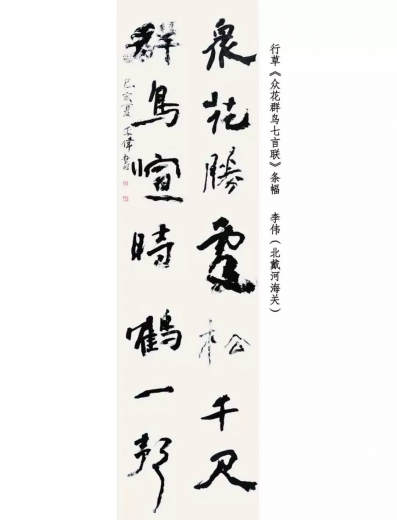 行草《众花群鸟七言联》条幅 李伟（北戴河海关）
衆花勝處松千尺
群鳥喧時鶴一聲
己亥夏 李偉書